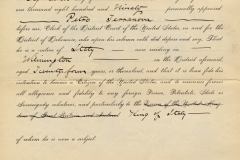 one thousand eight hundred and Ninety personally appeared
Pietro Terranova
before me, Clerk of the District Court of the United States, in and for the
District of Delaware, who upon his solemn oath did depose and say: That he
is a native of Italy now residing in
Wilmington in the District aforesaid,
aged Twenty four years, or thereabout, and that it is bona fide his
intention to become a Citizen of the United States, and to renounce forever
all allegiance and fidelity to any foreign Prince, Potentate, State or
Sovereignty whatever, and particularly to the Queen of the United King-
dom of Great Britain and Ireland King of Italy
of whom he is now a subject